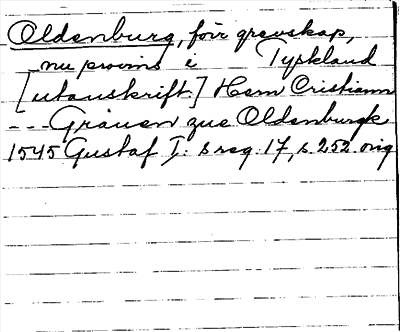 Oldenburg, förr grevskap,
nu provins i Tyskland
[utanskrift:] Hern Cristiann
--- Grauen zue Oldenburgk
1545 Gustaf I: s reg. 17, s. 252. orig